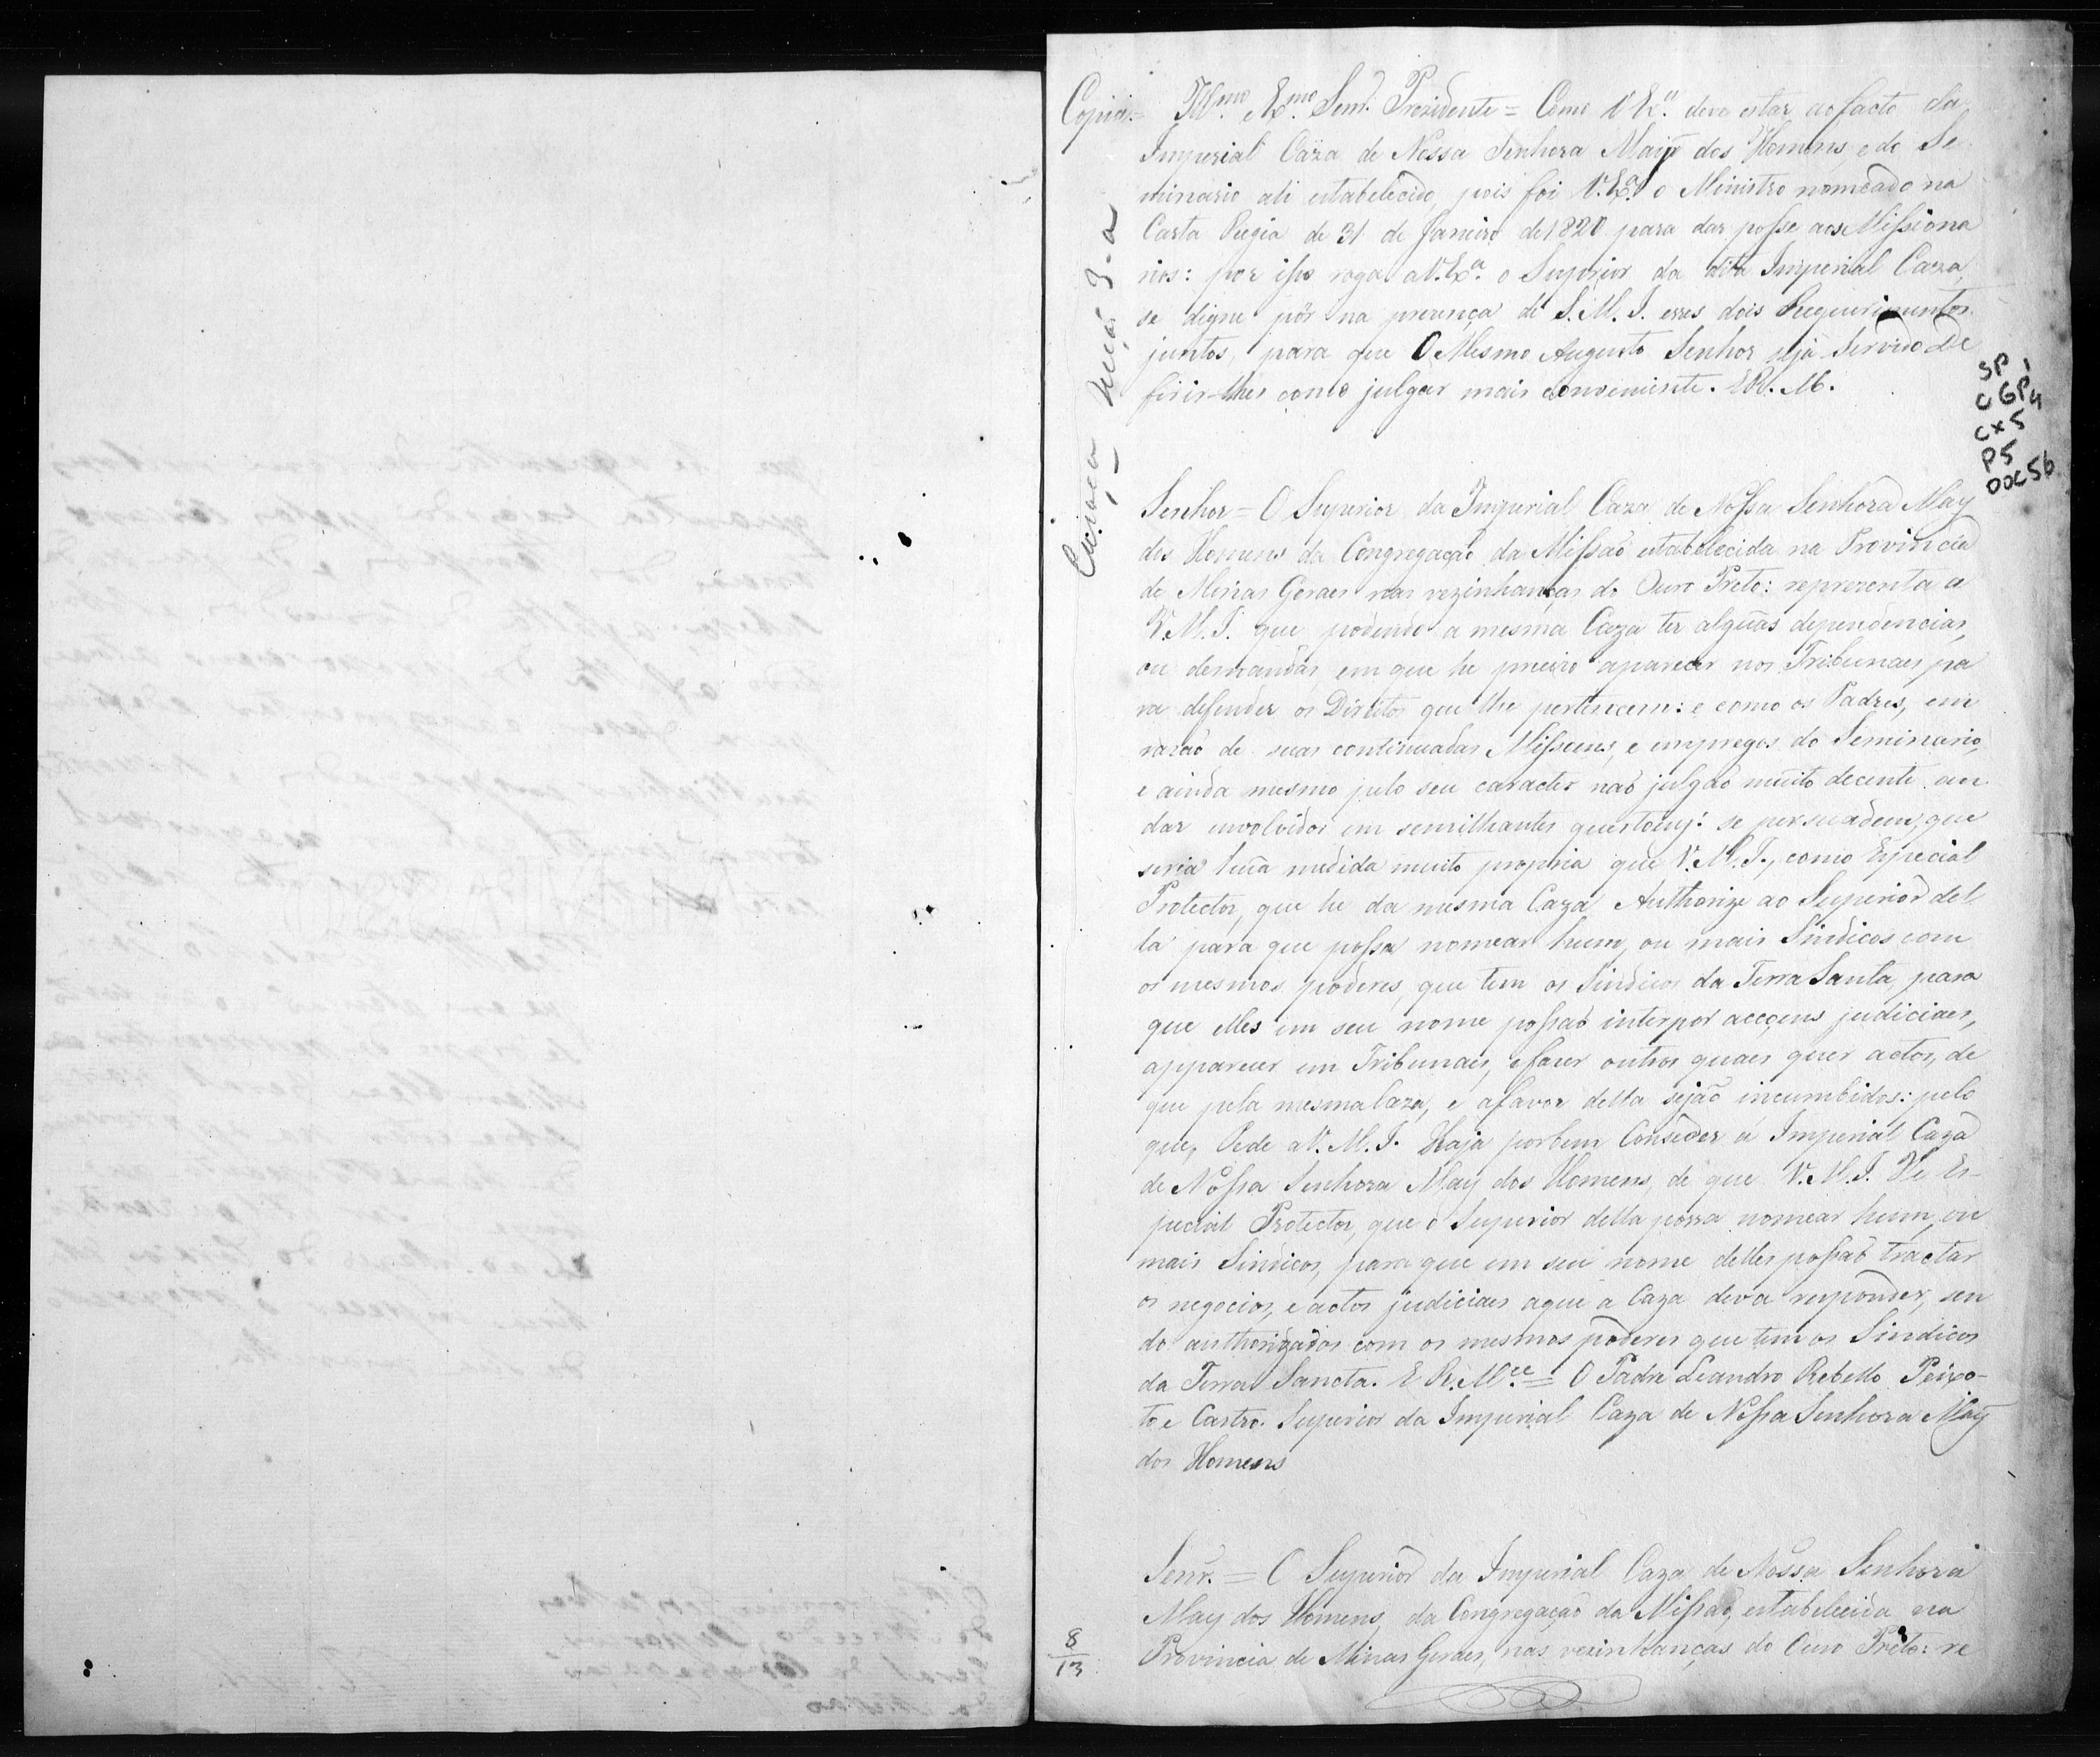 Copia= Illmo. Exmo. Senr. Prezidente = Como V. Exa. deve estar ao facto da
Imperial Caza de Nossa Senhora Maiy dos Homens, e do Se
minario ali estabelecido, pois foi V. Exa. o Ministro nomeado na
Carta Regia de 31 de Janeiro de 1820 para dar posse aos Missiona
rios: por isso roga a V. Exa. o Superior da dita Imperial Caza,
se digne pôr na prezença de S. M. I. esses dois Requerimentos
juntos, para que O Mesmo Augusto Senhor seja Servido De
firir-lhes como julgar mais conveniente. E R. M.
SP 1
CGP4
CX5
P5
DOC56
Senhor = O Superior da Imperial Caza de Nossa Senhora May
dos Homens da Congregação da Missaõ estabelecida na Provincia
de Minas Geraes nas vezinhanças do Ouro Preto: reprezenta a
V. M. I. que podendo a mesma Caza ter algũas dependencias,
ou demandas, em que he precizo aparecer nos Tribunaes pa
ra defender os Direitos que lhe pertencem: e como os Padres, em
razaõ de suas continuadas Missoens, e empregos do Seminario,
e ainda mesmo pelo seu caracter naõ julgaõ muito decente an
dar involvidos em semilhantes questoens: se persuadem, que
seria hũa medida muito propria que V. M. I., como Especial
Protector, que he da mesma Caza Authorize ao Superior del
la para que possa nomear hum, ou mais Sindicos com
os mesmos poderes, que tem os Sindicos da Terra Santa, para
que elles em seu nome possaõ interpor acçoens judiciaes,
apparecer em Tribunaes, e fazer outros quaes quer actos, de
que pela mesma Caza, e a favor della sejaõ incumbidos: pelo
que, Pede a V. M. I. Haja por bem Conseder á Imperial Caza
de Nossa Senhora May dos Homens, de que V. M. I. He Es-
pecial Protector, que o Superior della possa nomear hum, ou
mais Sindicos, para que em seu nome delles possaõ tractar
os negocios, e actos judiciaes a que a Caza deva responder, sen
do authorizados com os mesmos poderes que tem os Sindicos
da Terra Sancta. E R. Mce. = O Padre Leandro Rebello Peixo-
to e Castro. Superior da Imperial Caza de Nossa Senhora May
dos Homens
Senr. = O Superior da Imperial Caza de Nossa Senhora
May dos Homens, da Congregaçaõ da Missaõ, estabelecida na
Provincia de Minas Geraes, nas vezinhanças do Ouro Preto: re
8
13